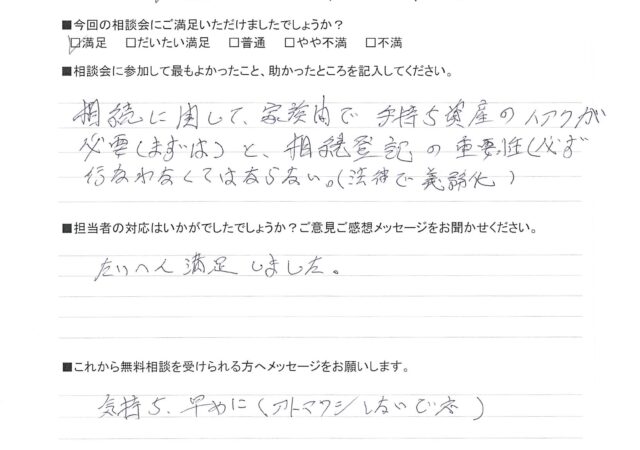 ■今回の相談会にご満足いただけましたでしょうか？
☑満足 □だいたい満足 □普通 □やや不満 □不満
■相談会に参加して最もよかったこと、助かったところを記入してください。
相続に関して、家族内で手持ち資産のハアクが
必要（まずは）と、相続登記の重要性（必ず
行なわなくてはならない。（法律で義務化）
■担当者の対応はいかがでしたでしょうか？ご意見ご感想メッセージをお聞かせください。
たいへん満足しました。
■これから無料相談を受けられる方へメッセージをお願いします。
気持ち、早めに（アトマワシしないで